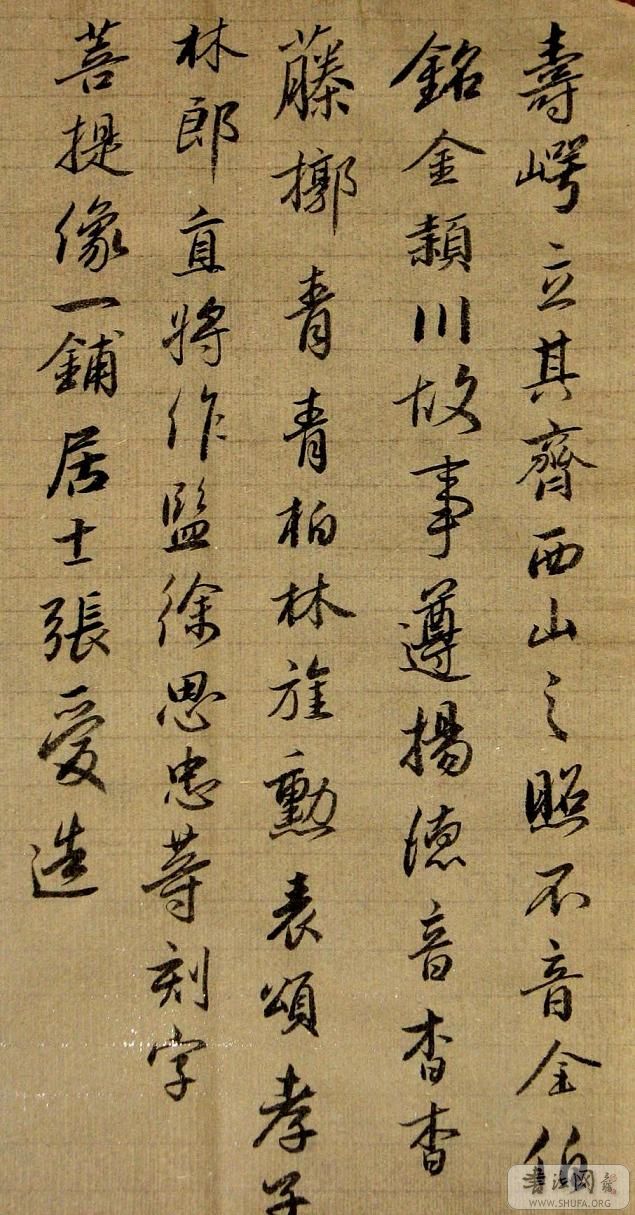 壽崿立其齊西山之照不音全伯
銘金穎川故事遵揚德音杳杳
藤槨青青柏林旌勳表頌孝子
林郎直將作監徐思忠等刻字
菩提像一鋪居士張愛造
書法网
WWW.SHUFA.ORG